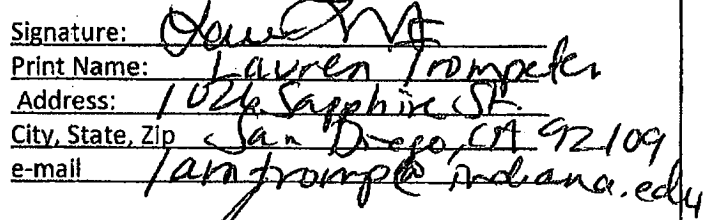 Signature:
Print Name: Lauren Trompeter
Address: 1026 Sapphire St.
City, State, Zip San Diego, CA 92109
e-mail lamtromp@indiana.edu